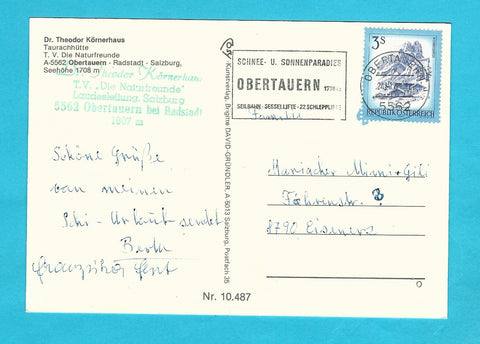 Dr. Theodor Körnerhaus
Taurachhütte
T. V. Die Naturfreunde
A-5562 Obertauern - Radstadt - Salzburg,
Seehöhe 1708 m
Dr. Theodor Körnerhaus
T.V. „Die Naturfreunde"
Landesleitung, Salzburg
5562 Obertauern bei Radstadt
1607 m
Schöne Grüße
von meinen
Schi-Urlaub sendet
Berta
Nr. 10.487
Kunstverlag, Brigitte DAVID-GRÜNDLER, A-5013 Salzburg, Postfach 35
SCHNEE- U. SONNENPARADIES
OBERTAUERN
SEILBAHN-SESSELLIFTE-22 SCHLEPPLIFTE
Familie
OBERTAUERN
5562
3S
REPUBLIK ÖSTERREICH
Mimi + Gili
Föhrenstr. 3
8790 Eisenerz